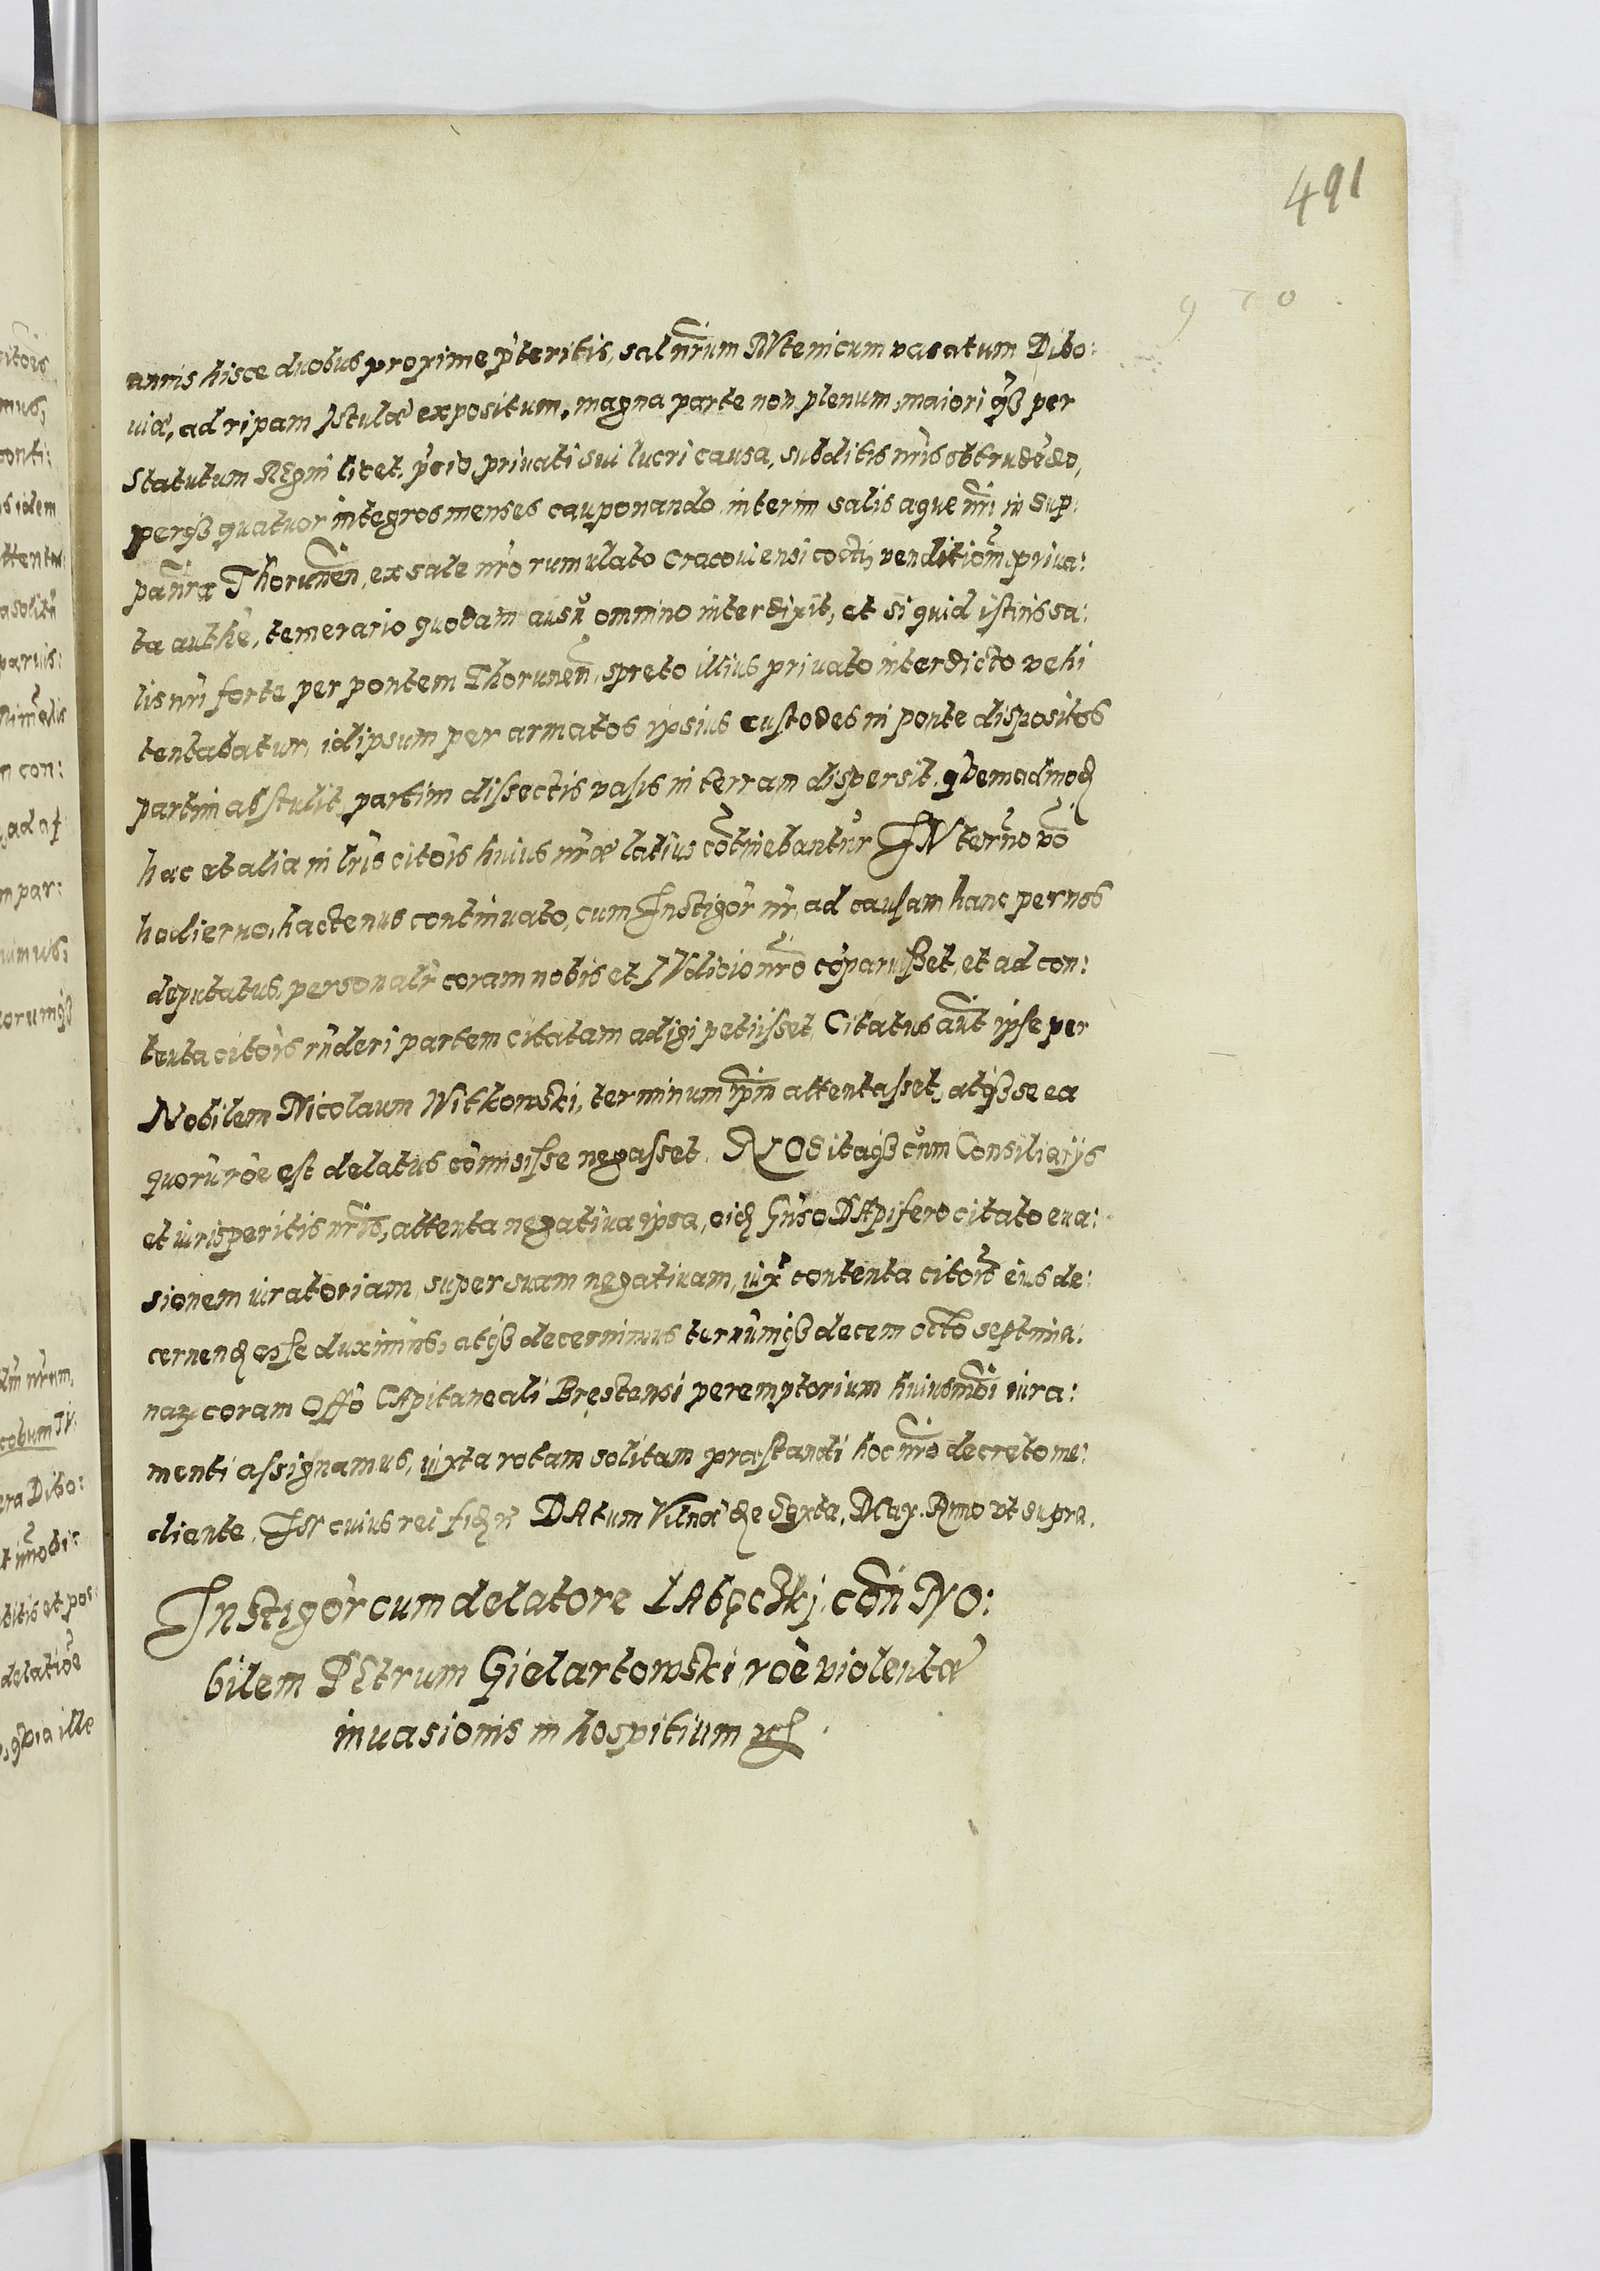 491
annis hisce duobus proxime pteritis, sal nrum RUtenicum vasatum Dibo:
uiæ, ad ripam Istulæ expositum, magna parte non plenum, maiori qз per
Statutum REgni licet, pcio, priuati sui lucri causa, subditis nris obtrudedo,
perqз quatuor integros menses cauponando, interim salis aque nri in sup:
panra Thorunen, ex sale nro rumulato Cracouiensi cocti, venditiom, priua:
ta authe, temerario quodam ausu omnino interdixit, et si quid istius sa:
lis nri forte per pontem Thorunen, spreto illius priuato interdicto vehi
tentabatur, idipsum per armatos ipsius custodes in ponte dispositos
partim abstulit, partim dissectis vasis in terram dispersit, quemadmod
hac et alia in lris citois huius nræ latius cotinebantur IN termo vo
hodierno, hactenus continuato, cum Instigor nr, ad causam hanc per nos
deputatus, personalr coram nobis et IVdicio nro coparuisset, et ad con:
tenta citois rnderi partem citatam adigi petiisset, Citatus aut ipse per
Nobilem Nicolaum Witkowski, terminum ipm attentasset, atqз se ea
quoru roe est delatus comisisse negasset. NOs itaqз cum Consiliarijs
et iurisperitis nris, attenta negatiua ipsa, eid Gnso DApifero citato eua:
sionem iuratoriam, super suam negatiuam, iux contenta citois eius de:
cernend esse duximus, atqз decernimus ternumqз decem octo septima:
nar coram Offo CApitaneali Brestensi peremptorium huiusmodi iura:
menti assignamus, iuxta rotam solitam præstandi hoc nro decreto me:
diante, In cuius rei fid DAtum Vilnæ die Sexta, May. Anno vt supra.
InStigor cum delatore LAbęczkj, con NO:
bilem PEtrum Gielartowski, roe violentæ
inuasionis in hospitium